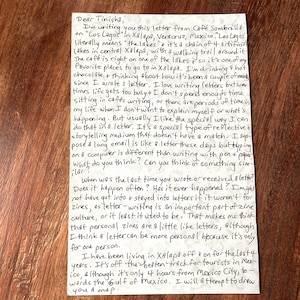 Dear Tinisha,
I'm writing you this letter from Café Sombrilla
on "Los Lagos" in Xalapa, Veracruz, Mexico. Los Lagos
literally means "the lakes" & it's a chain of 4 artificial
lakes in central Xalapa, with a walking trail around it.
The café is right on one of the lakes & so it's one of my
favorite places to go to in Xalapa. I'm drinking a hot
chocolate & thinking about how it's been a couple of months
since I wrote a letter. I love writing letters but some-
times life gets too busy & I don't spend enough time
sitting in cafés writing, or there are periods of time in
my life when I don't want to explain myself or what's
happening. But usually I like the special way I can
do that in a letter. It's a special type of reflective &
storytelling medium that doesn't have a match. I sup-
pose a long email is like a letter these days but typing
on a computer is different than writing with pen & paper.
What do you think? Can you think of something sim-
ilar?
When was the last time you wrote or received a letter?
Does it happen often? Has it ever happened? I might
not have got into & stayed into letters if it weren't for
zines, as letter-writing is an important part of zine
culture, or at least it used to be. That makes me think
that personal zines are a little like letters, although
I think a letter can be more personal because it's only
for one person.
I have been living in Xalapa off & on for the last 4
years. It's off-the-beaten-track for tourists in Mex-
ico, although it's only 4 hours from Mexico City, to-
wards the Gulf of Mexico. I will attempt to draw
you a map.